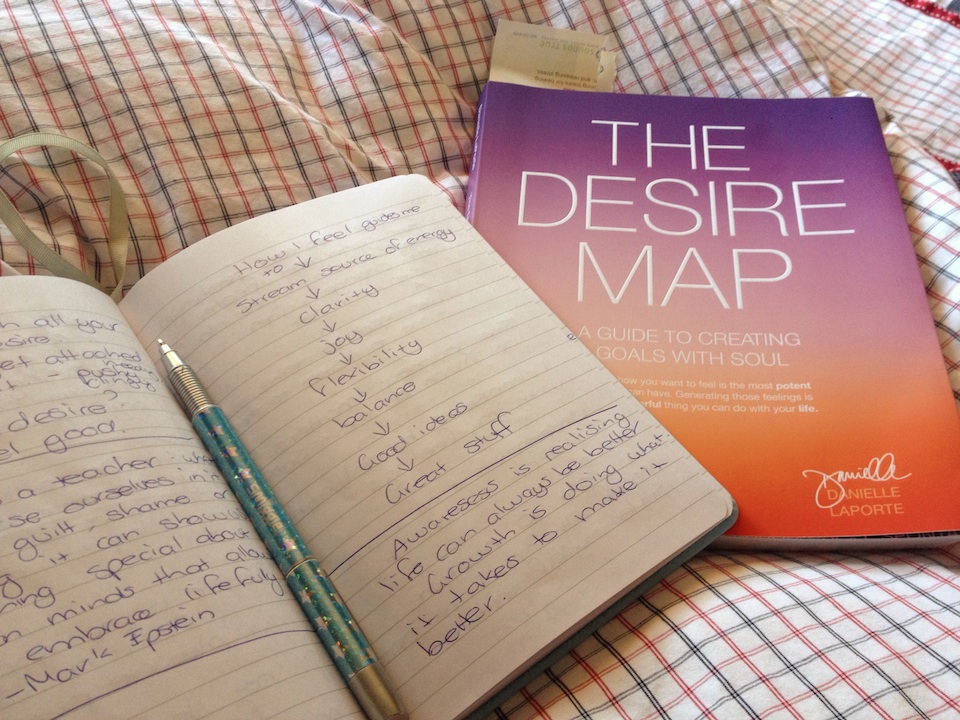 all your
desire.
get attached
needy
pushing
desire?
feel good.
a teacher:
ourselves in
guilt, shame or
it can show
special about
minds that allow
embrace life fully
- Mark Epstein
How I feel guides me
to ↓
Stream source of energy
↓
clarity
↓
joy
↓
flexibility
↓
balance
↓
Good ideas
↓
Great stuff
Awaresess is realising
life can always be better
Growth is doing what
it takes to make it
better.
SOUNDS TRUE
THE
DESIRE
MAP
A GUIDE TO CREATING
GOALS WITH SOUL
how you want to feel is the most potent
can have. Generating those feelings is
thing you can do with your life.
Danielle
DANIELLE
LAPORTE